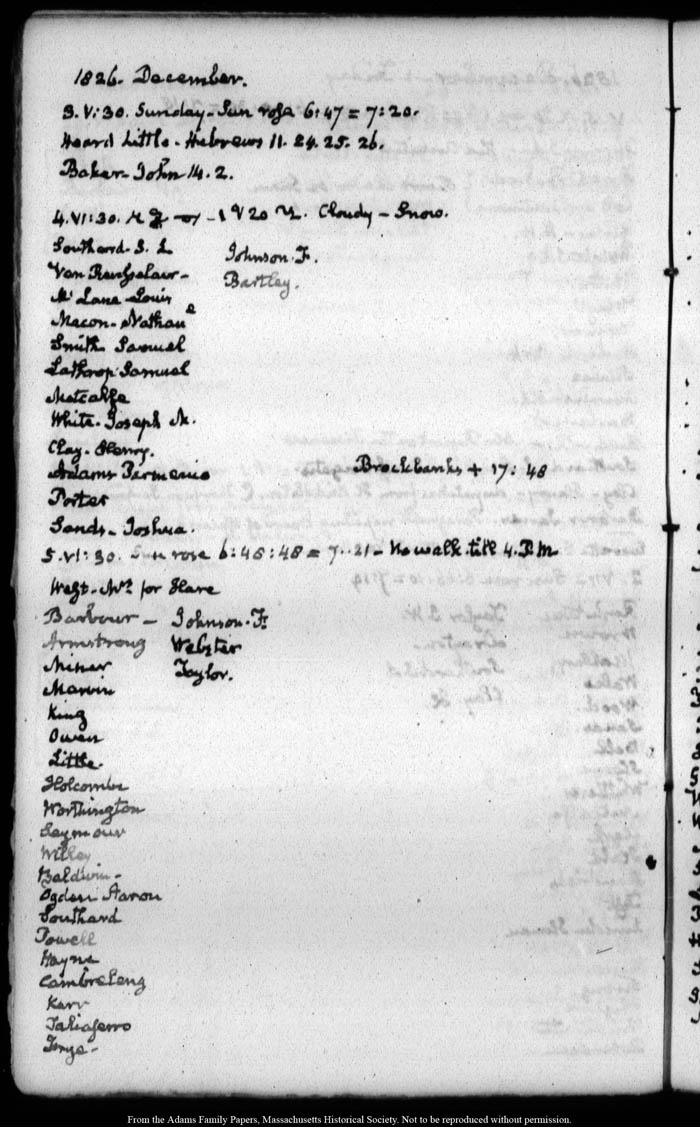 1826. December.
3. V:30. Sunday - Sun rose 6:47 = 7:20.
Heard Little - Hebrews 11. 24. 25. 26.
Baker - John 14. 2.
4. VI:30. Cloudy - Snow.
Southard. S. L Johnson. F.
Van Rensselaer - Bartley.
McLane Louis
Macon - Nathan
Smith Samuel
Lathrop Samuel
Metcalfe
White - Joseph M.
Clay - Henry.
Adams Parmenio Brockbanks + 17: 48
Porter
Sands - Joshua.
5. VI:30. Sun rose 6:46:48 = 7..21 - No walk till 4. P.M
for
Barbour - Johnson. F.
Armstrong Webster
Miner Taylor.
Marvin
King
Owen
Little
Holcombe
Worthington
Seymour
Willey
Baldwin -
Ogden Aaron
Southard
Powell
Hayne
Cambreleng
Kerr
Taliaferro
From the Adams Family Papers, Massachusetts Historical Society. Not to be reproduced without permission.